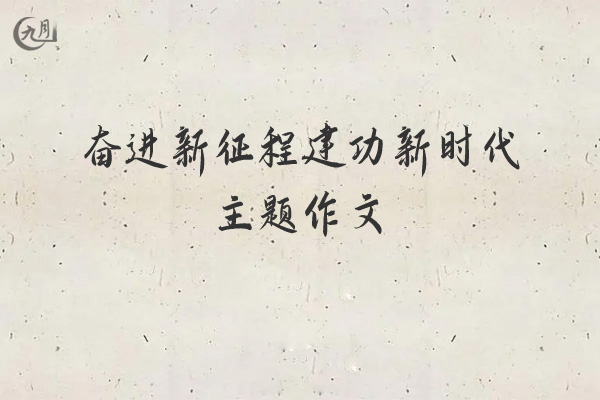 九月
奋进新征程建功新时代
主题作文